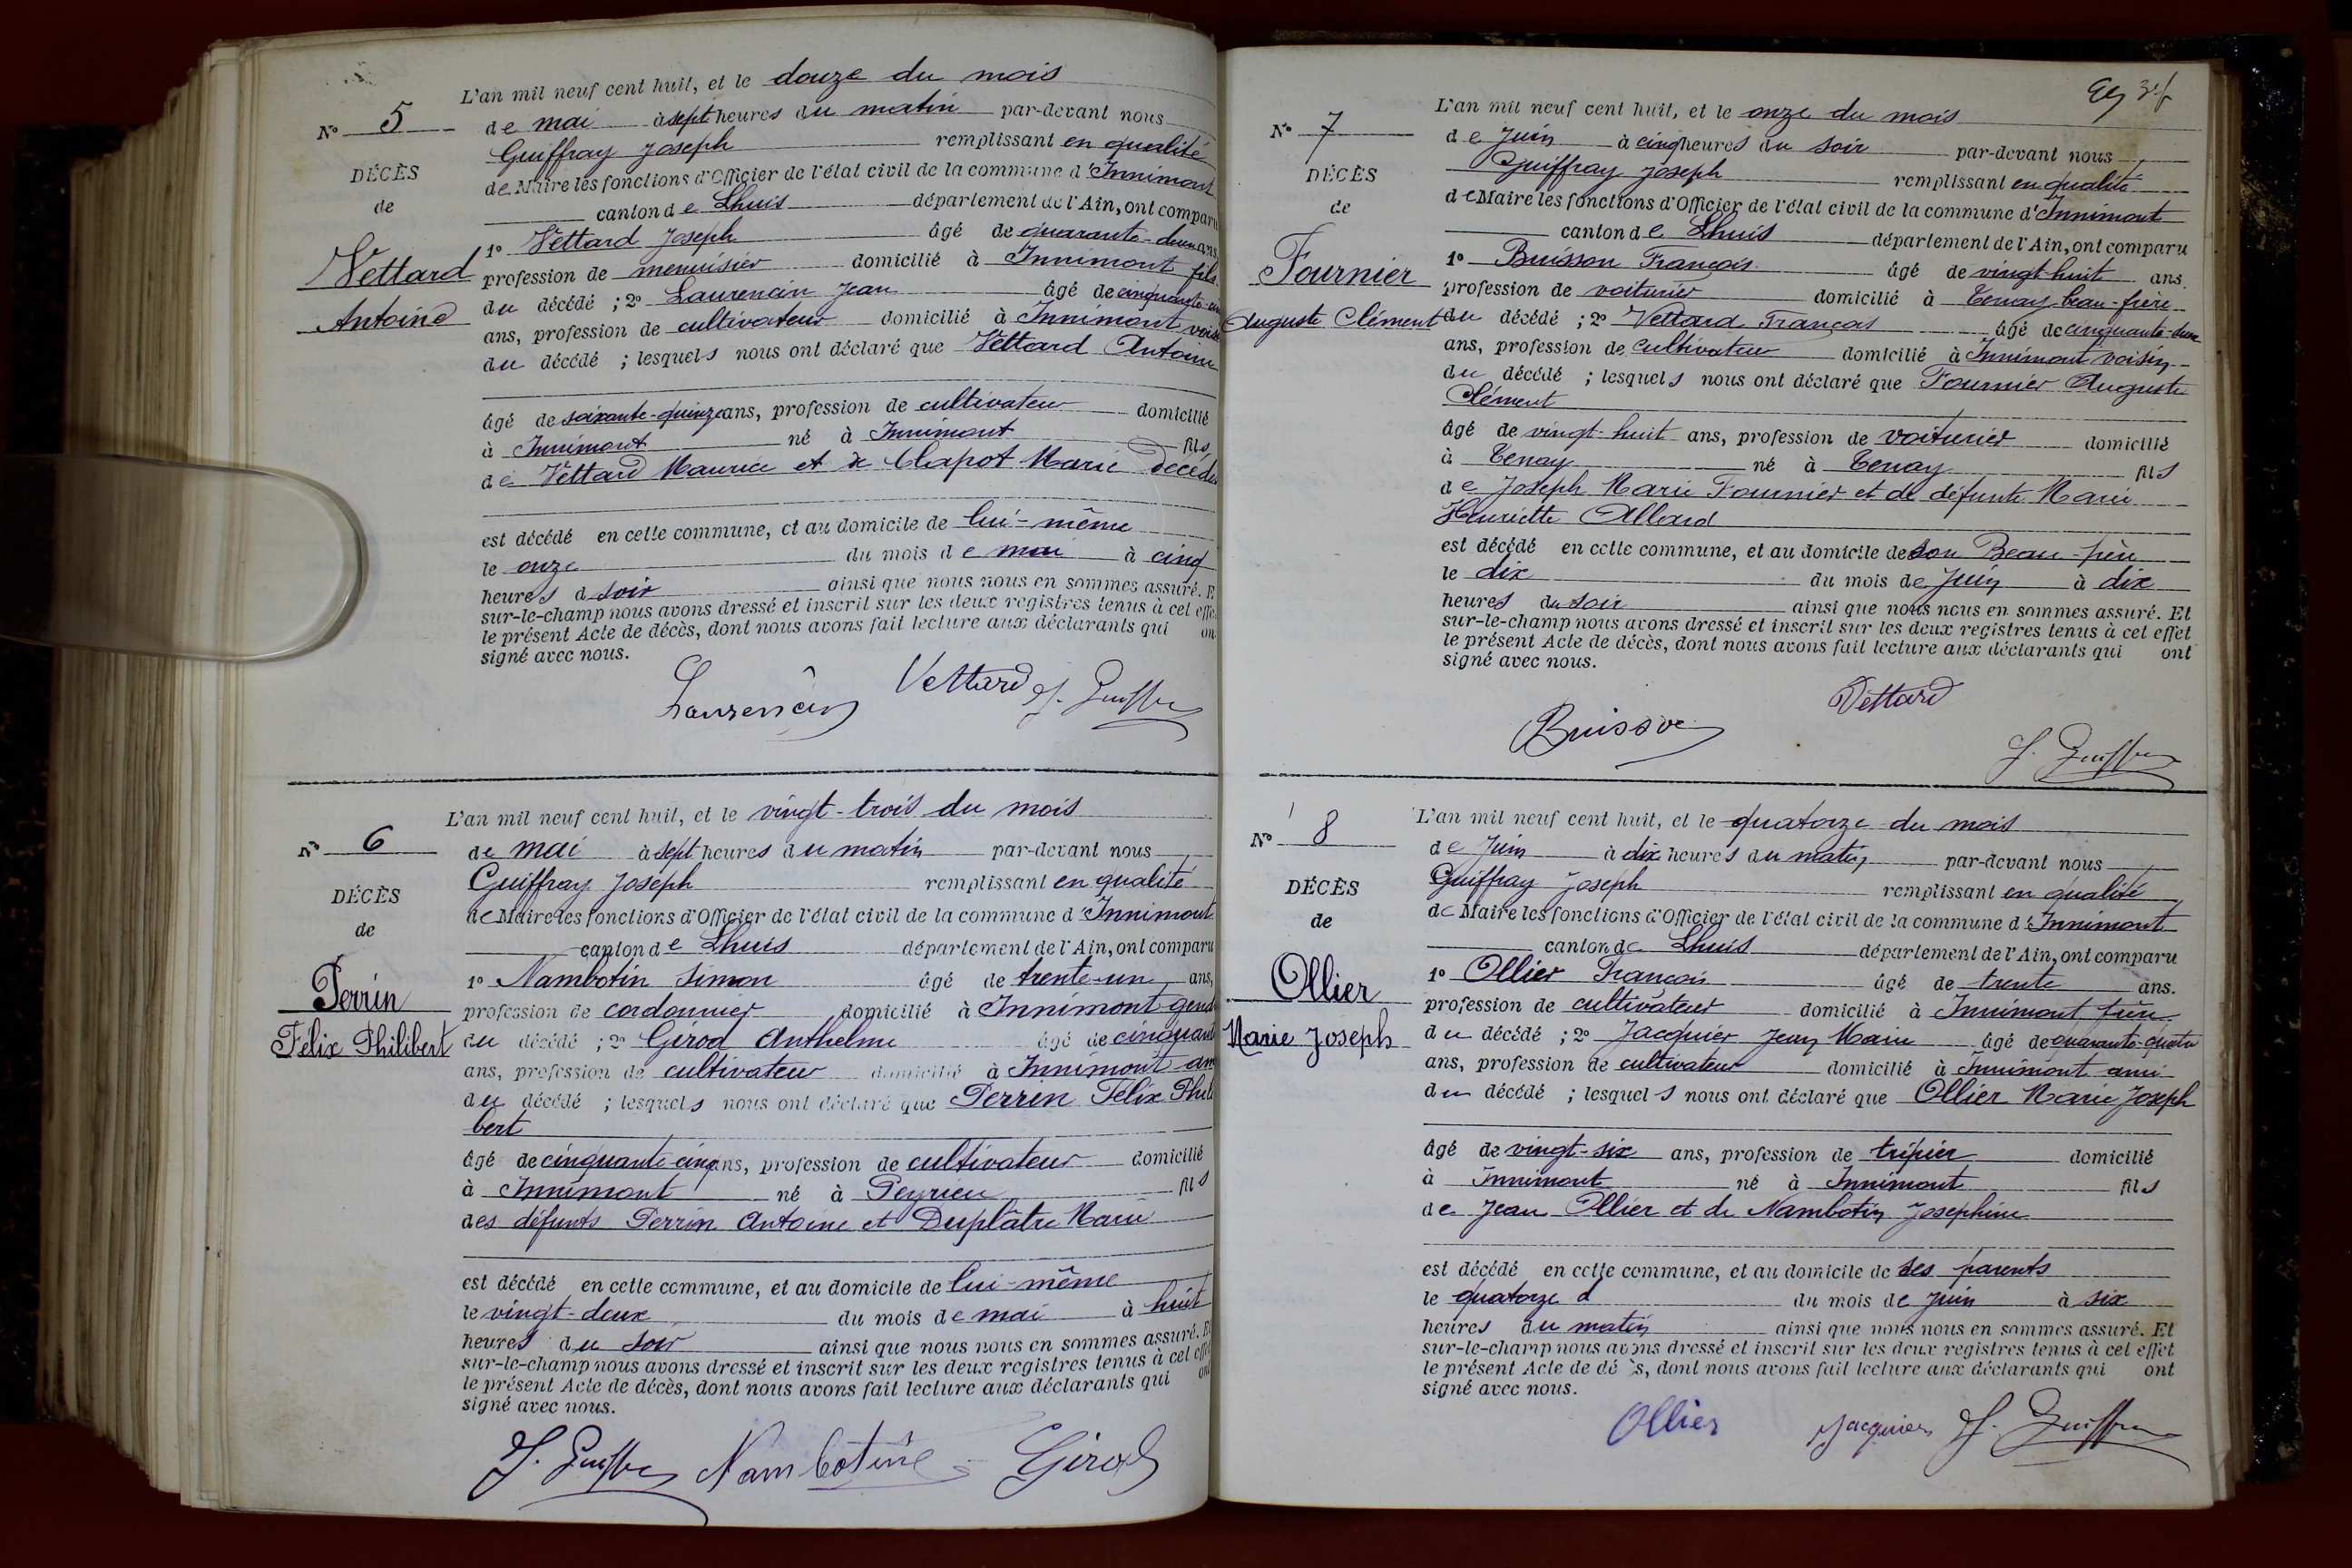 L'an mil neuf cent huit, et le douze du mois
N° 5
de mai à sept heures du matin par-devant nous
Guiffray Joseph remplissant en qualité
DÉCÈS
de Maire les fonctions d'Officier de l'état civil de la commune d'Innimont
de
canton de Lhuis département de l'Ain, ont comparu
1° Vettard Joseph âgé de quarante-deux ans,
Vettard
profession de menuisier domicilié à Innimont fils
Antoine
du décédé ; 2° Laurencin Jean âgé de
ans, profession de cultivateur domicilié à Innimont voisin
du décédé ; lesquels nous ont déclaré que Vettard Antoine
âgé de soixante-quinze ans, profession de cultivateur domicilié
à Innimont né à Innimont fils
de Vettard Maurice et de Chapot Marie décédés
est décédé en cette commune, et au domicile de lui-même
le onze du mois de mai à cinq
heures d soir ainsi que nous nous en sommes assuré. E
sur-le-champ nous avons dressé et inscrit sur les deux registres tenus à cet effe
le présent Acte de décès, dont nous avons fait lecture aux déclarants qui on
signé avec nous.
Laurencin Vettard J. Guiffray
L'an mil neuf cent huit, et le vingt-trois du mois
N° 6
de mai à sept heures du matin par-devant nous
Guiffray Joseph remplissant en qualité
DÉCÈS
de Maire les fonctions d'Officier de l'état civil de la commune d'Innimont
de
canton de Lhuis département de l'Ain, ont comparu
Perrin
1° Nambotin Simon âgé de trente-un ans,
profession de cordonnier domicilié à Innimont gendre
Félix Philibert
du décédé ; 2° Girod Anthelme âgé de cinquante
ans, profession de cultivateur domicilié à Innimont ami
du décédé ; lesquels nous ont déclaré que Perrin Félix Phili
bert
âgé de cinquante-cinq ans, profession de cultivateur domicilié
à Innimont né à Peyrieu fils
des défunts Perrin Antoine et Duplâtre Marie
est décédé en cette commune, et au domicile de lui-même
le vingt-deux du mois de mai à huit
heures du soir ainsi que nous nous en sommes assuré. E
sur-le-champ nous avons dressé et inscrit sur les deux registres tenus à cet effe
le présent Acte de décès, dont nous avons fait lecture aux déclarants qui ont
signé avec nous.
J. Guiffray Nambotin Girod
L'an mil neuf cent huit, et le onze du mois
N° 7
de Juin à cinq heures du soir par-devant nous
Guiffray Joseph remplissant en qualité
DÉCÈS
de Maire les fonctions d'Officier de l'état civil de la commune d'Innimont
de
canton de Lhuis département de l'Ain, ont comparu
Fournier
1° Buisson François âgé de vingt-huit ans.
profession de voiturier domicilié à Tenay beau-frère
Auguste Clément
du décédé ; 2° Vettard François âgé de cinquante-deux
ans, profession de cultivateur domicilié à Innimont voisin
du décédé ; lesquels nous ont déclaré que Fournier Auguste
Clément
âgé de vingt-huit ans, profession de voiturier domicilié
à Tenay né à Tenay fils
de Joseph Marie Fournier et de défunte Marie
Henriette Allard
est décédé en cette commune, et au domicile de son Beau-père
le dix du mois de Juin à dix
heures du soir ainsi que nous nous en sommes assuré. Et
sur-le-champ nous avons dressé et inscrit sur les deux registres tenus à cet effet
le présent Acte de décès, dont nous avons fait lecture aux déclarants qui ont
signé avec nous.
Buisson Vettard
J. Guiffray
L'an mil neuf cent huit, et le quatorze du mois
N° 8
de Juin à dix heures du matin par-devant nous
Guiffray Joseph remplissant en qualité
DÉCÈS
de Maire les fonctions d'Officier de l'état civil de la commune d'Innimont
de
canton de Lhuis département de l'Ain, ont comparu
Ollier
1° Ollier François âgé de trente ans.
profession de cultivateur domicilié à Innimont frère
Marie Joseph
du décédé ; 2° Jacquier Jean Marie âgé de quarante-quatre
ans, profession de cultivateur domicilié à Innimont ami
du décédé ; lesquels nous ont déclaré que Ollier Marie Joseph
âgé de vingt-six ans, profession de tripier domicilié
à Innimont né à Innimont fils
de Jean Ollier et de Nambotin Josephine
est décédé en cette commune, et au domicile de ses parents
le quatorze d du mois de Juin à six
heures du matin ainsi que nous nous en sommes assuré. Et
sur-le-champ nous avons dressé et inscrit sur les deux registres tenus à cet effet
le présent Acte de dé s, dont nous avons fait lecture aux déclarants qui ont
signé avec nous.
Ollier Jacquier J. Guiffray